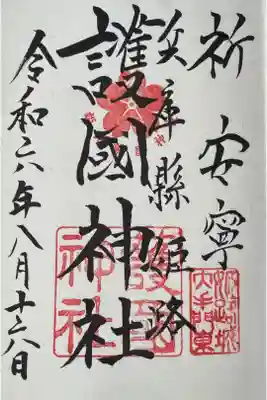 祈安寧
兵庫縣姫路
護國神社
令和六年八月十六日
護國神社
姫路城
大手門東